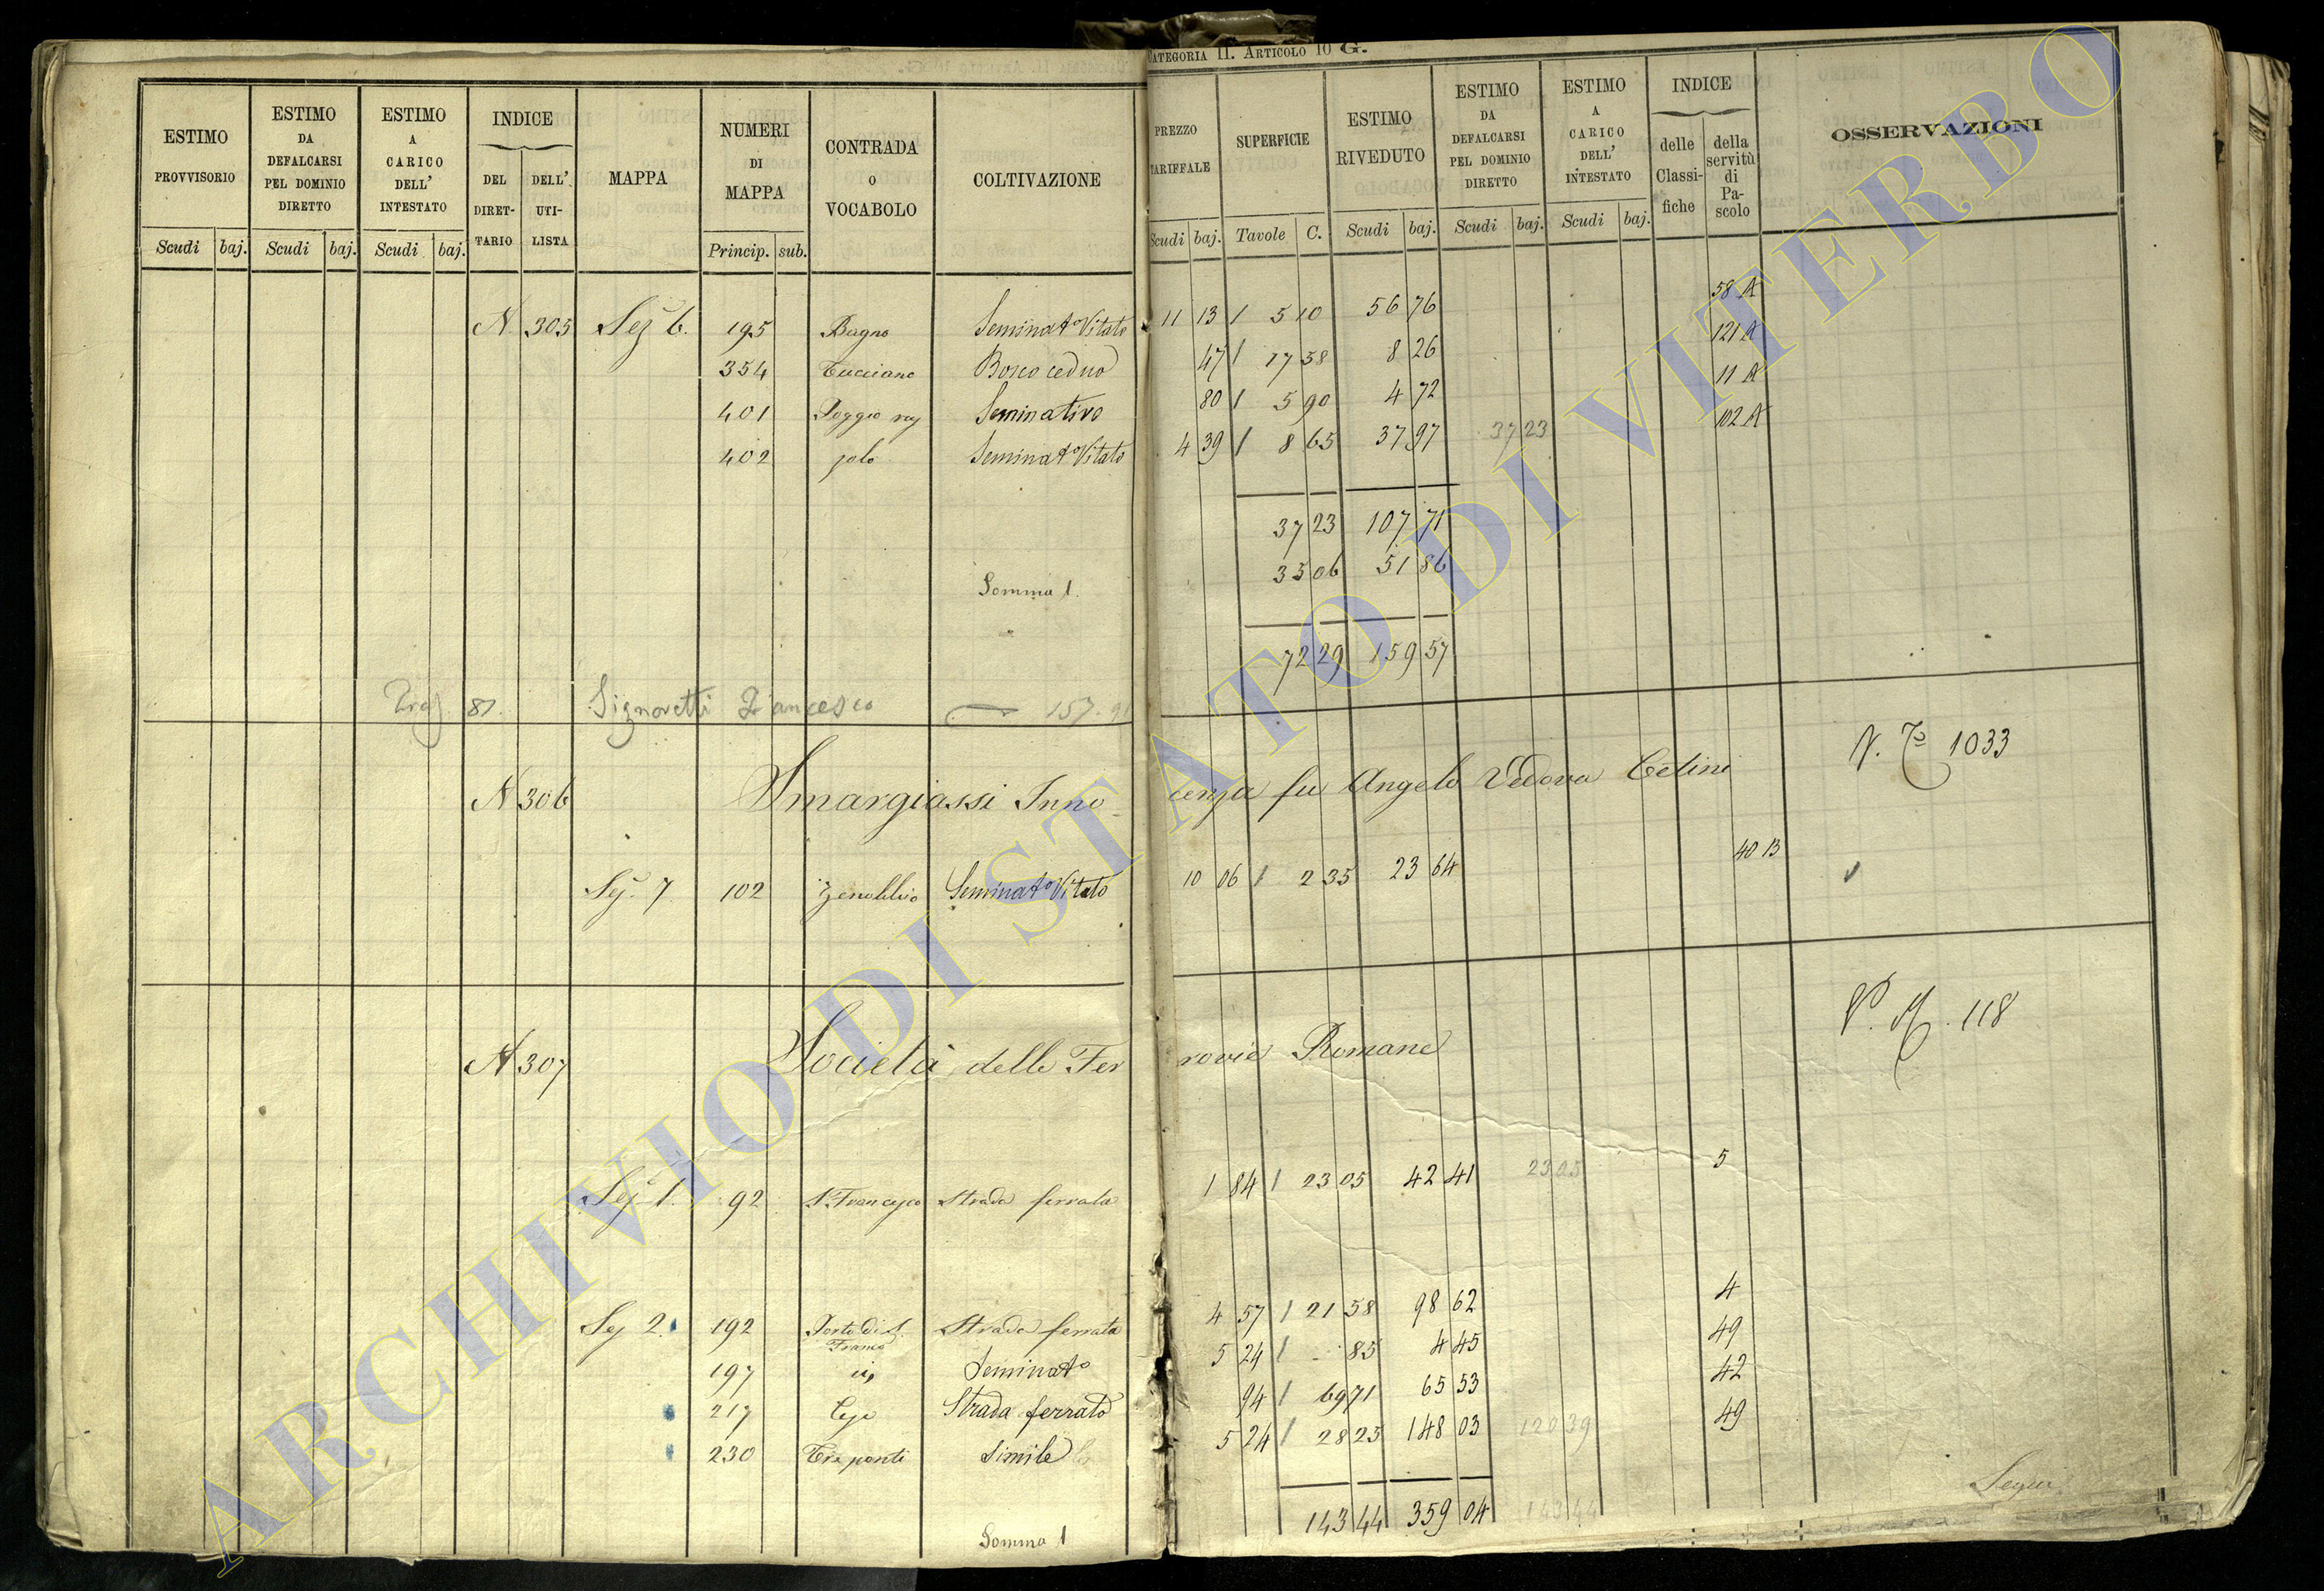 CATEGORIA II. ARTICOLO 10 G.
ESTIMO PROVVISORIO Scudi baj.
ESTIMO DA DEFALCARSI PEL DOMINIO DIRETTO Scudi baj.
ESTIMO A CARICO DELL' INTESTATO Scudi baj.
INDICE DEL DIRETTARIO DELL' UTILISTA
MAPPA
NUMERI DI MAPPA Princip. sub.
CONTRADA O VOCABOLO
COLTIVAZIONE
PREZZO TARIFFALE Scudi baj.
SUPERFICIE Tavole C.
ESTIMO RIVEDUTO Scudi baj.
ESTIMO DA DEFALCARSI PEL DOMINIO DIRETTO Scudi baj.
ESTIMO A CARICO DELL' INTESTATO Scudi baj.
INDICE delle Classifiche della servitù di Pascolo
OSSERVAZIONI
N. 305 Sez. 6. 195 Bagno Seminato Vitato 11 13 / 5 10 56 76 58 A
354 Tucciano Bosco ceduo 47 / 17 58 8 26 121 A
401 Poggio raz Seminativo 80 / 5 90 4 72 11 A
402 zolo Seminato Vitato 4 39 / 8 65 37 97 37 23 102 A
37 23 107 71
Somma 1. 35 06 51 86
72 29 159 57
87. Signoretti Francesco 157. 91
N 306 Smargiassi Innocenza fu Angelo Vedova Celini 1033
Sez. 7 102 Zenobbio Seminato Vitato 10 06 / 2 35 23 64 40 B
N 307 Società delle Ferrovie Romane 118
Sez. 1. 92 S. Francesco Strada ferrata 1 84 / 23 05 42 41 23 05 5
Sez 2. 192 Porto di S. Franco Strada ferrata 4 57 / 21 58 98 62 4
197 id Seminato 5 24 / 85 4 45 49
217 Strada ferrata 94 / 69 71 65 53 42
230 Tre ponti Simile 5 24 / 28 25 148 03 120 39 49
Somma 1 143 44 359 04 143 44
Segue
ARCHIVIO DI STATO DI VITERBO